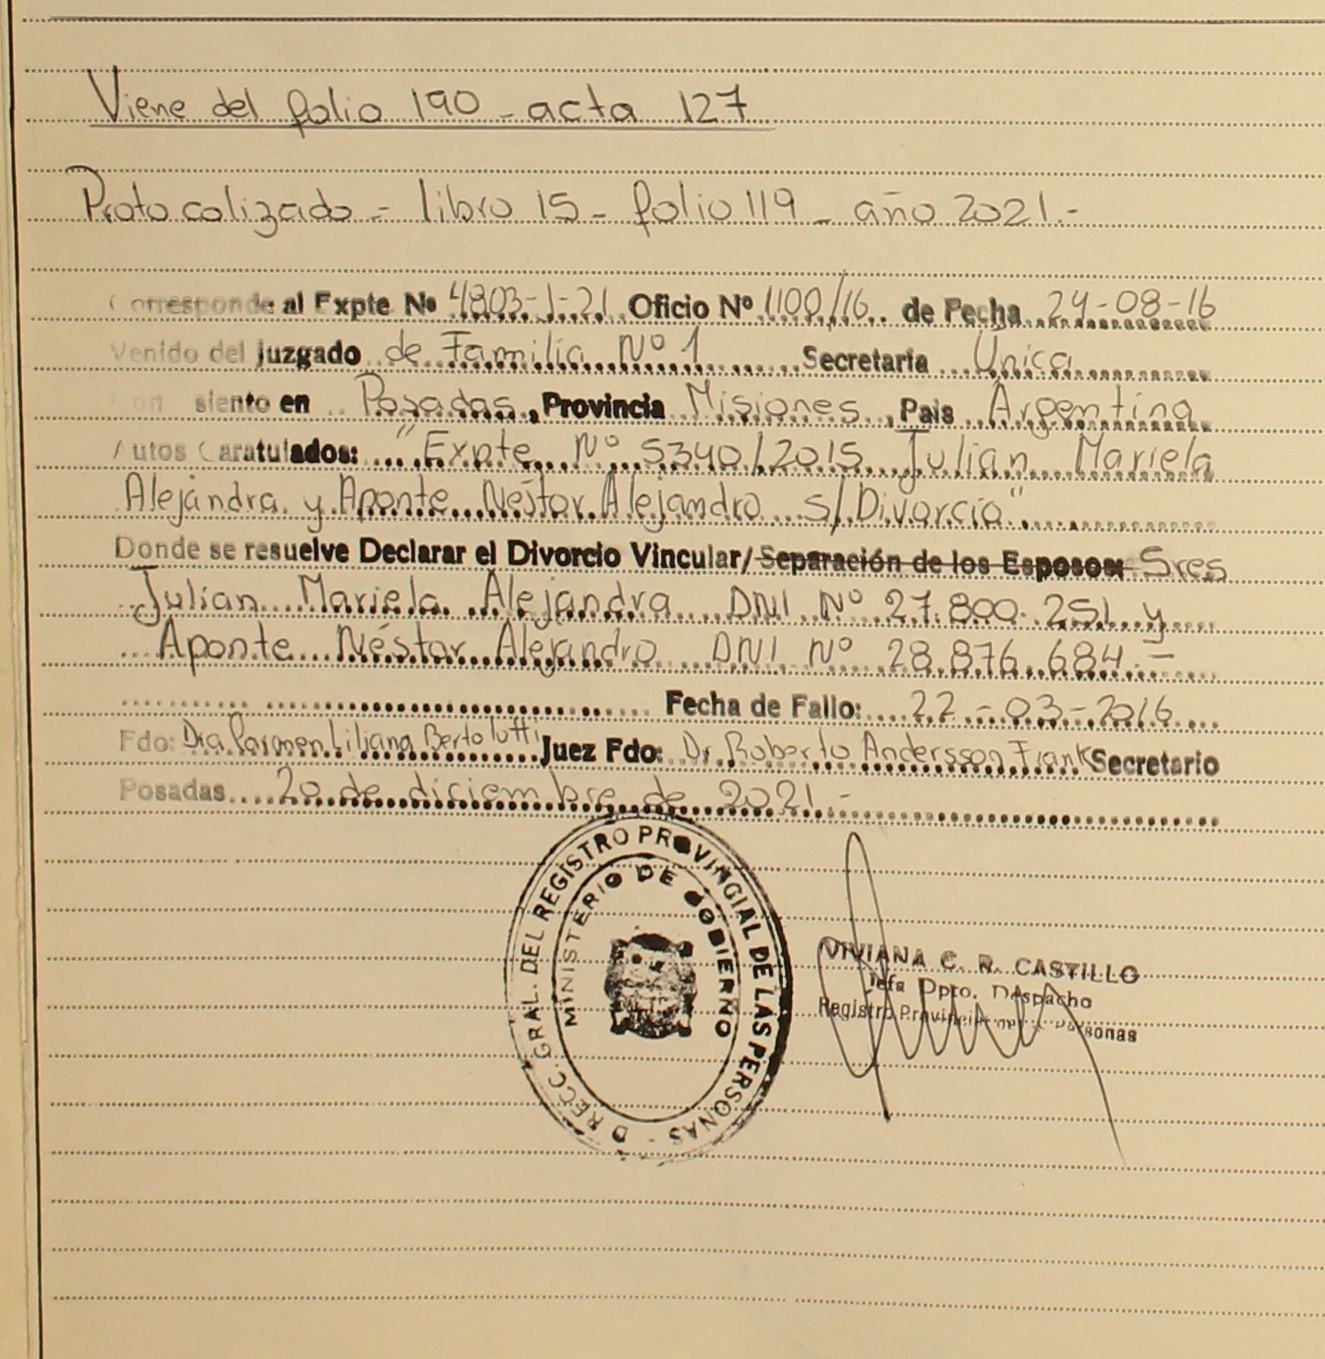 Viene del folio 190 - acta 127
Protocolizado - libro 15 - folio 119 - año 2021.-
Corresponde al Expte Nº 4803-J-21 Oficio Nº 1100/16.. de Fecha 24-08-16
Venido del Juzgado de Familia Nº 1 Secretaria Única
con siento en Posadas, Provincia Misiones, País Argentina
Autos Caratulados: "Expte Nº 5340/2015 Julian Mariela
Alejandra y Aponte Néstor Alejandro s/Divorcio"
Donde se resuelve Declarar el Divorcio Vincular/Separación de los Esposos: Sres
Julian Mariela Alejandra DNI Nº 27.800.251 y
Aponte Néstor Alejandro DNI Nº 28.876.684.-
Fecha de Fallo: 22-03-2016
Fdo: Dra Carmen Liliana Bertolutti Juez Fdo: Dr. Roberto Andersson Frank Secretario
Posadas 20 de diciembre de 2021.-
DIRECC. GRAL. DEL REGISTRO PROVINCIAL DE LAS PERSONAS -
MINISTERIO DE GOBIERNO
VIVIANA C. R. CASTILLO
Jefa Dpto. Despacho
Registro Provincial Personas